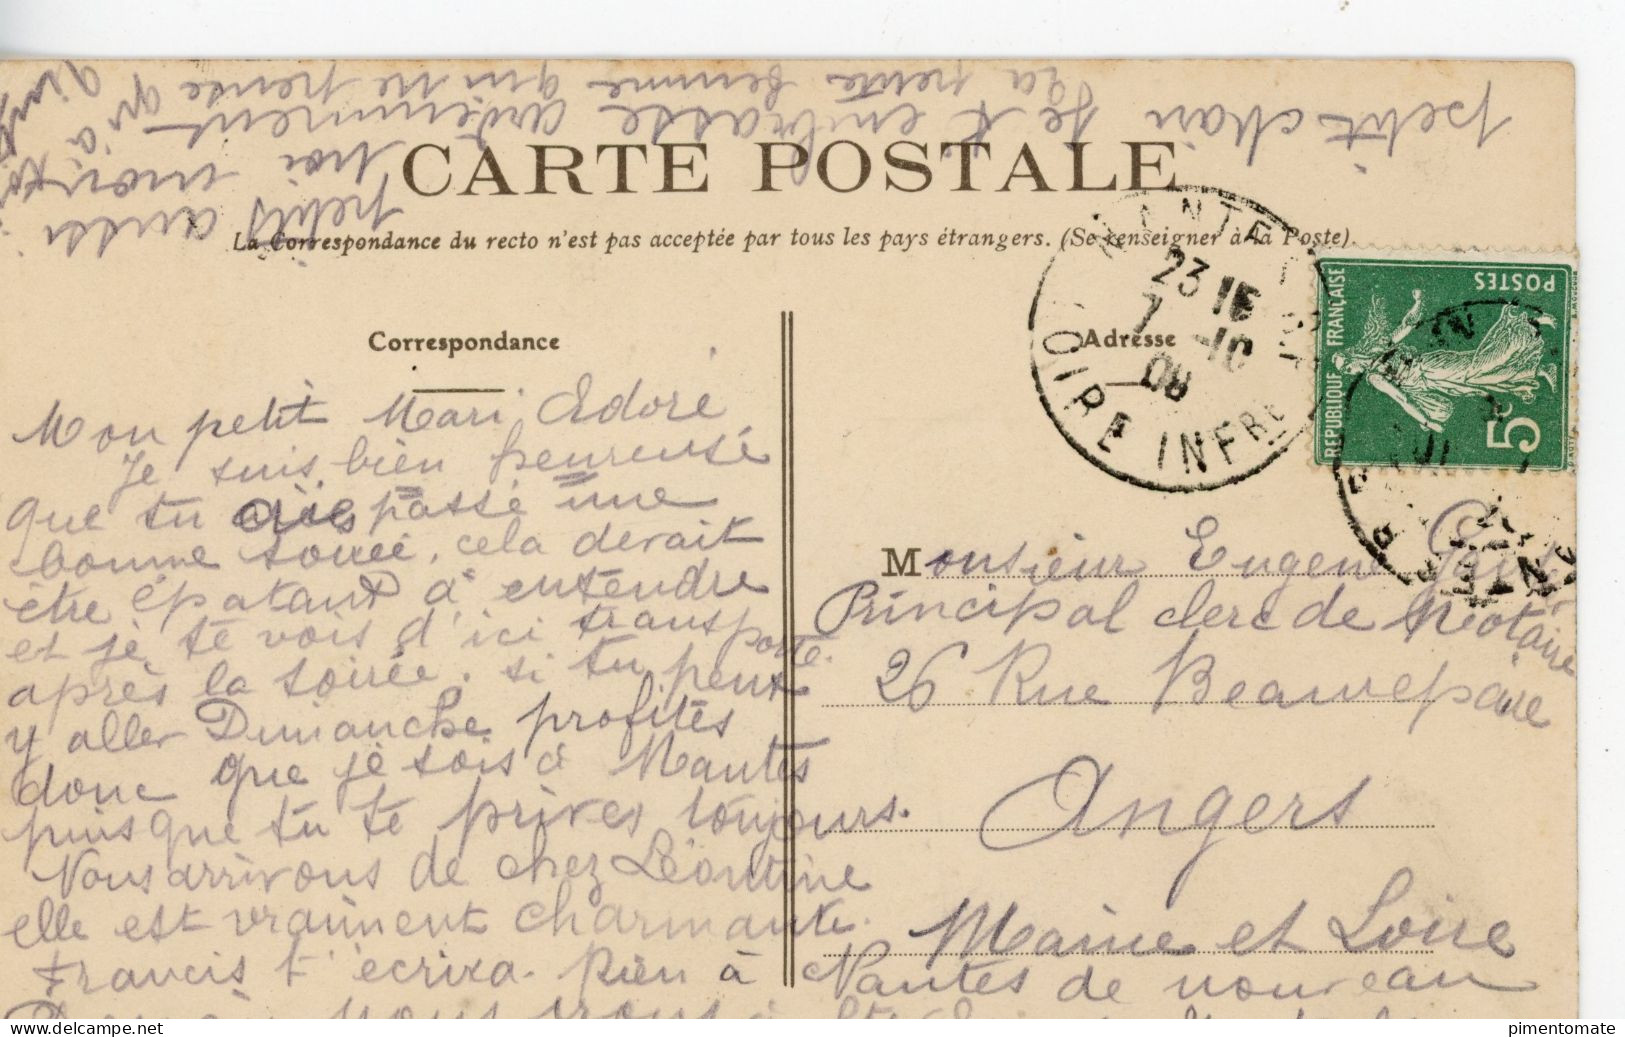 CARTE POSTALE
La Correspondance du recto n'est pas acceptée par tous les pays étrangers. (Se renseigner à la Poste).
Correspondance
Mon petit Mari Adoré
Je suis bien heureuse
que tu aies passé une
bonne soirée, cela devait
être épatant à entendre
et je te vois d'ici transporté
après la soirée. si tu peux
y aller Dimanche profites
donc que je sois à Nantes
puisque tu te prives toujours.
Nous arrivons de chez Léontine
elle est vraiment charmante.
Francis t'écrira. Rien à Nantes de nouveau
nous irons à
petit chéri je t'embrasse ardemment
ta petite femme qui ne pense qu'à
toi
petits amis
Adresse
NANTES
23 15
7 -10
08
LOIRE INFRE
REPUBLIQUE FRANÇAISE
POSTES
5c
Monsieur Eugene
Principal clerc de Notaire
26 Rue Beaurepaire
Angers
Maine et Loire
www.delcampe.net
pimentomate